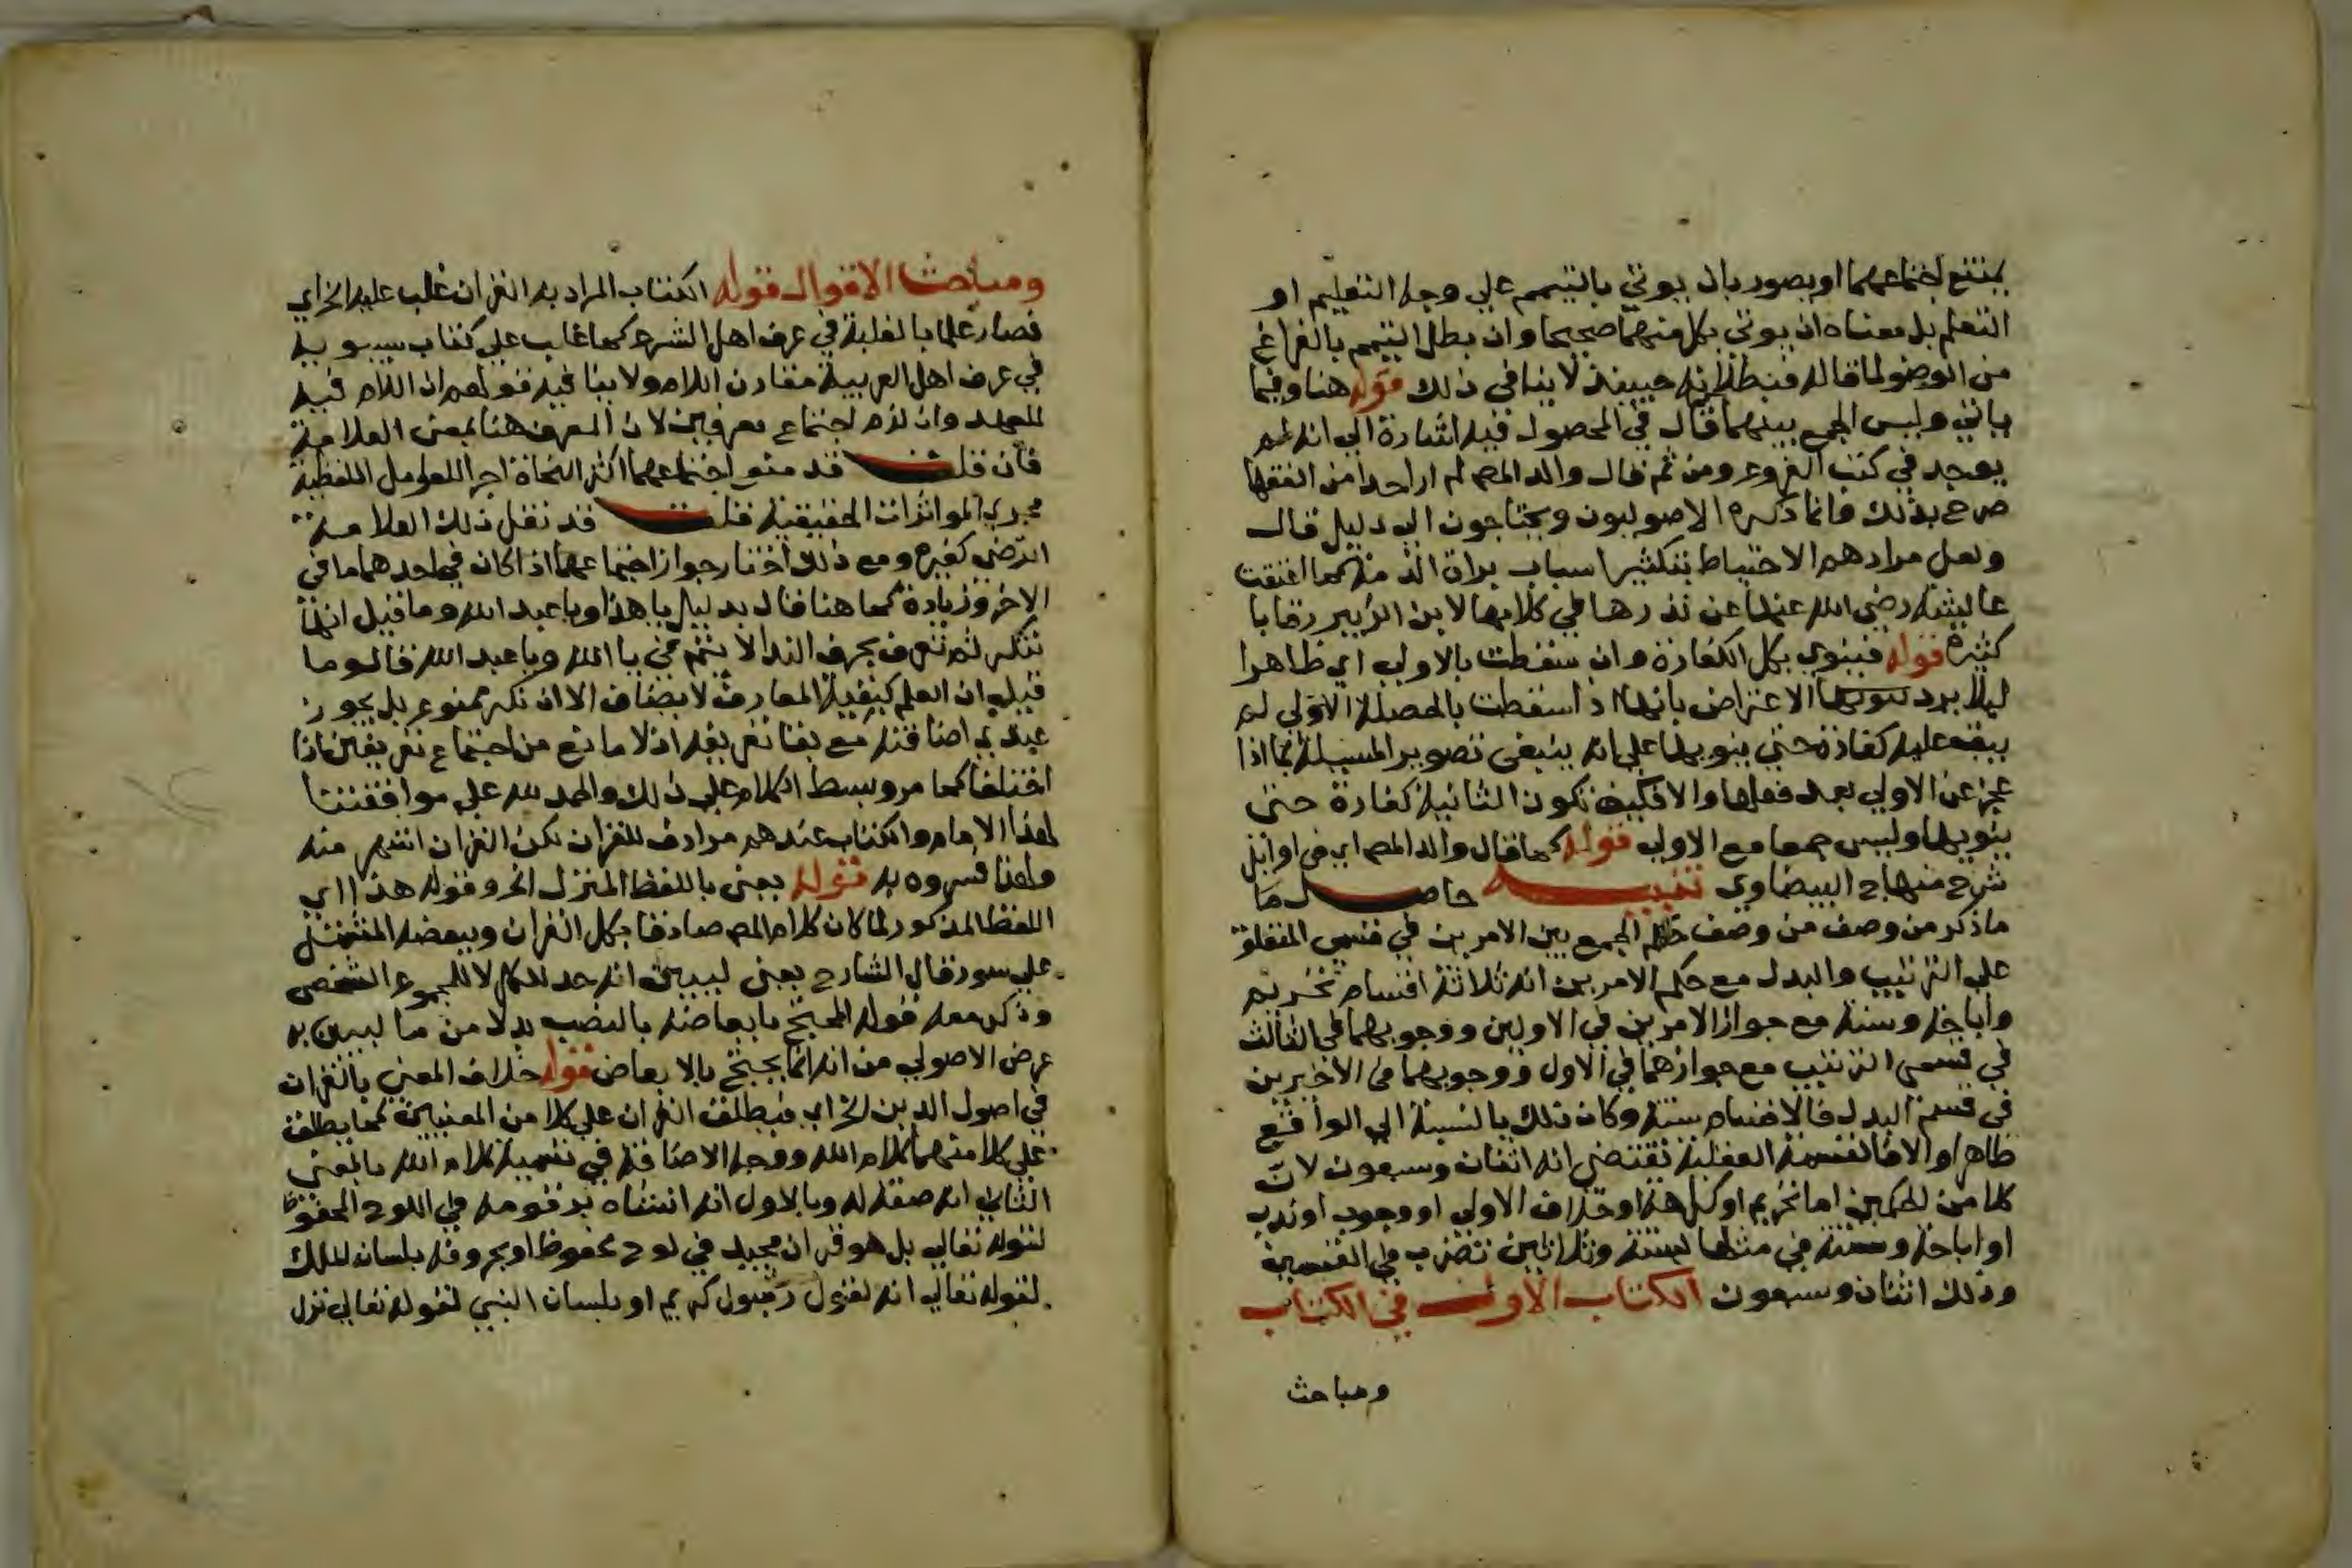 يمتنع اجتماعهما او يصور بان يوتي بالتيمم علي وجه التعليم او
التعلم بل معناه ان يوتي بكل منهما صحيحا وان بطل التيمم بالفراغ
من الوضو لما قاله فبطلانه حينيذ لا ينافي ذلك قوله هنا وفيما
ياتي وليس الجمع بينهما قال في المحصول فيه اشارة الي انه لم
يوجد في كتب الفروع ومن ثم قال والد المص لم ار احدا من الفقها
صرح بذلك وانما ذكره الاصوليون ويحتاجون الي دليل قال
ولعل مرادهم الاحتياط بتكثير اسباب براة الذمة كما اعتقت
عايشة رضي الله عنها عن نذرها في كلامها لابن الزبير رقابا
كثيرة قوله فينوي بكل الكفارة وان سقطت بالاولي اي ظاهرا
ليلا يرد الاعتراض بانها اذا سقطت بالخصلة الاولي لم
يبق عليه كفارة حتي ينويها علي انه ينبغي تصوير المسيلة بما اذا
عجز عن الاولي بعد فعلها والا فكيف تكون الثانية كفارة حتي
ينويها وليس جمعا مع الاولي قوله كما قال والد المص اي في اوايل
شرح منهاج البيضاوي تنبيه حاصل ما
ما ذكر من وصف من وصف حكم الجمع بين الامرين في قسمي المتعلق
علي الترتيب والبدل مع حكم الامرين انه ثلاثة اقسام تحريم
واباحة وسنة مع جواز الامرين في الاولين ووجوبهما في الثالث
في قسمي الترتيب مع جوازهما في الاول ووجوبهما في الاخيرين
في قسم البدل فالاقسام ستة وكان ذلك بالنسبة الي الواقع
ظاهرا والا فالقسمة العقلية تقتضي انه اثنان وسبعون لان
كلا من الحكمين اما تحريم او كراهة او خلاف الاولي او وجوب او ندب
او اباحة وستة في مثلها بستة وثلاثين تضرب في القسمين
وذلك اثنان وسبعون الكتاب الاول في الكتاب
ومباحث
ومباحث الاقوال قوله الكتاب المراد به القران غلب عليه الخ اي
فصار علما بالغلبة في عرف اهل الشرع كما غلب علي كتاب سيبويه
في عرف اهل العربية مقارن اللام ولا ينافيه قولهم ان اللام فيه
للعهد وان لزم اجتماع معرفين لان المعرف هنا بمعني العلامة
فان قلت قد منع اجتماعهما اكثر النحاة اجرا للعوامل اللفظية
مجري الموثرات الحقيقية قلت قد نقل ذلك العلامة
الرضي كغيره ومع ذلك اختار جواز اجتماعهما اذا كان في احدهما ما في
الاخر وزيادة كما هنا قال بدليل يا هذا ويا عبد الله وما قيل انها
تنكر ثم تعرف بحرف الندا لا يتم في يا الله ويا عبد الله قالوا وما
قيل ان العلم كبقية المعارف لا يضاف الا ان نكر ممنوع بل يجوز
عندي اضافته مع بقا تعريفه اذ لا مانع من اجتماع تعريفين اذا
اختلفا كما مر وبسط الكلام علي ذلك والحمد لله علي موافقتنا
لهذا الامام والكتاب عندهم مرادف للقران لكن القران اشهر منه
ولهذا فسروه به قوله يعني باللفظ المنزل الخ وقوله هذا اي
اللفظ المذكور لما كان كلام المص صادقا بكل القران وببعضه المشتمل
علي سور قال الشارح يعني ليبين انه حد للكل لا للمجموع الشخصي
وذكر معه قوله المحتج بابعاضه بالنصب بدلا من ما ليبين به
غرض الاصولي من انه انما يحتج بالابعاض قوله خلاف المعني بالقران
في اصول الدين الخ اي فيطلق القران علي كلا من المعنيين كما يطلق
علي كلا منهما كلام الله ووجه الاضافة في تسمية كلام الله بالمعني
الثاني انه صفة له وبالاول انه انشاه برقومه في اللوح المحفوظ
لقوله تعالي بل هو قران مجيد في لوح محفوظ او بحروفه بلسان الملك
لقوله تعالي انه لقول رسول كريم او بلسان النبي لقوله تعالي نزل